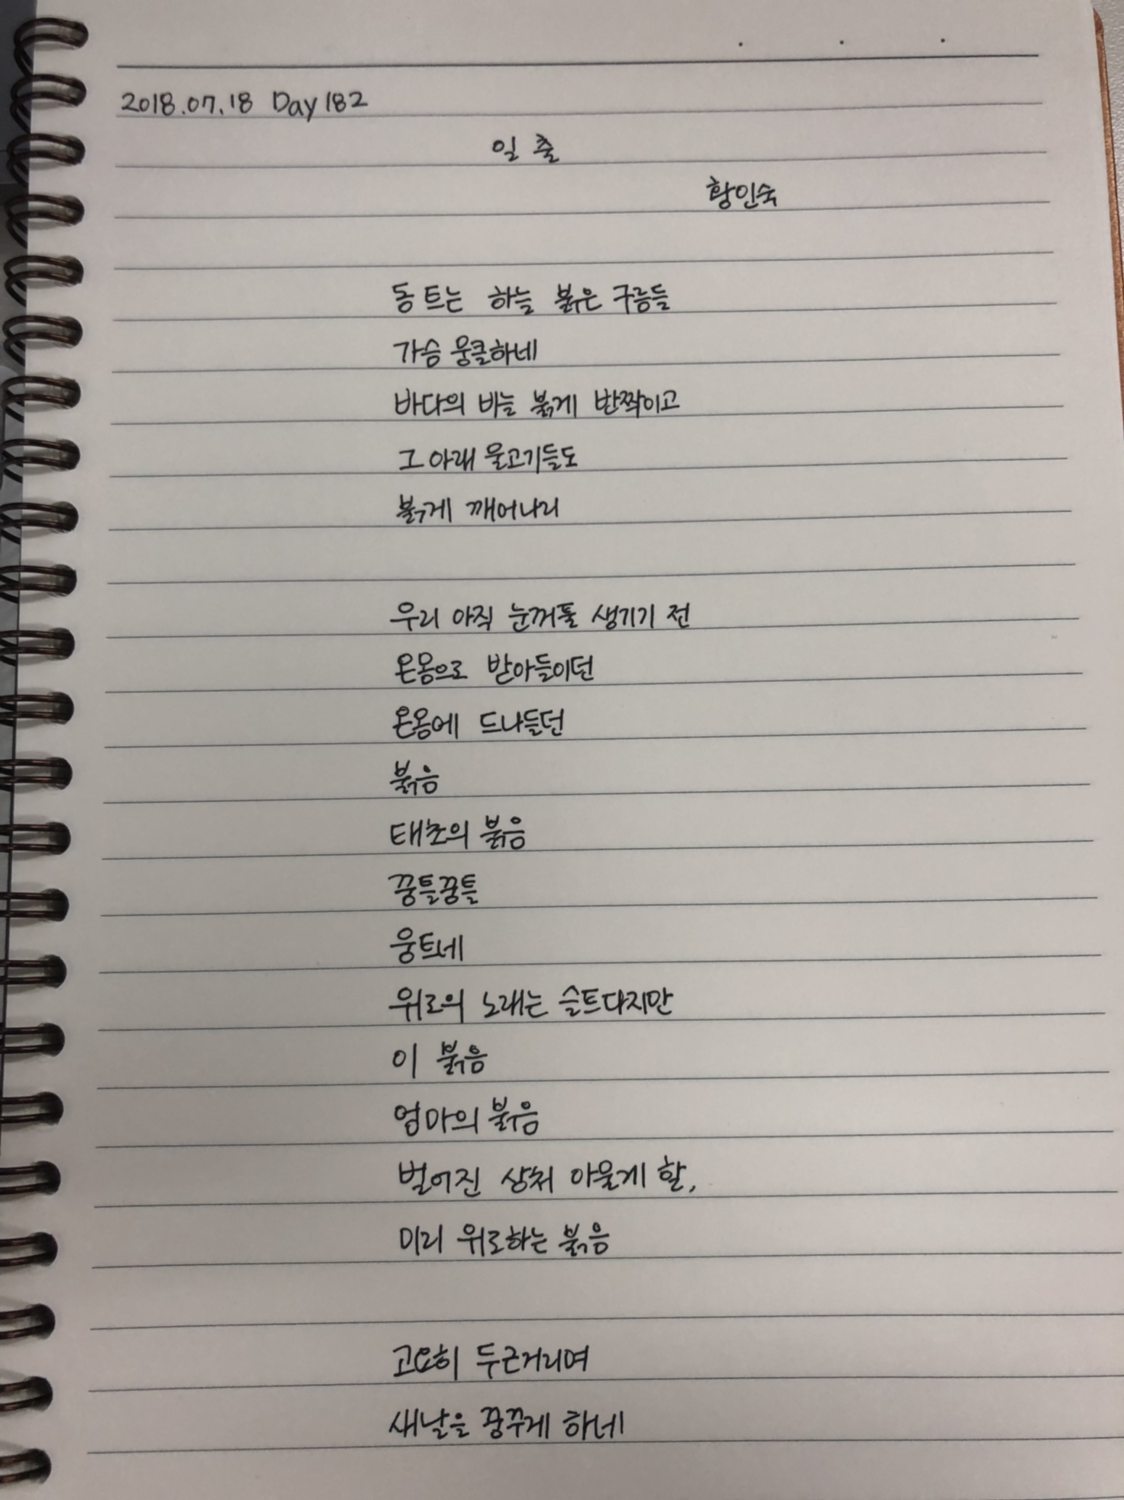 2018.07.18 Day 182
일출
황인숙
동트는 하늘 붉은 구름들
가슴 뭉클하네
바다의 비늘 붉게 반짝이고
그 아래 물고기들도
붉게 깨어나리
우리 아직 눈꺼풀 생기기 전
온몸으로 받아들이던
온몸에 드나들던
붉음
태초의 붉음
꿈틀꿈틀
움트네
위로의 노래는 슬프다지만
이 붉음
엄마의 붉음
벌어진 상처 아물게 할,
미리 위로하는 붉음
고요히 두근거리며
새날을 꿈꾸게 하네